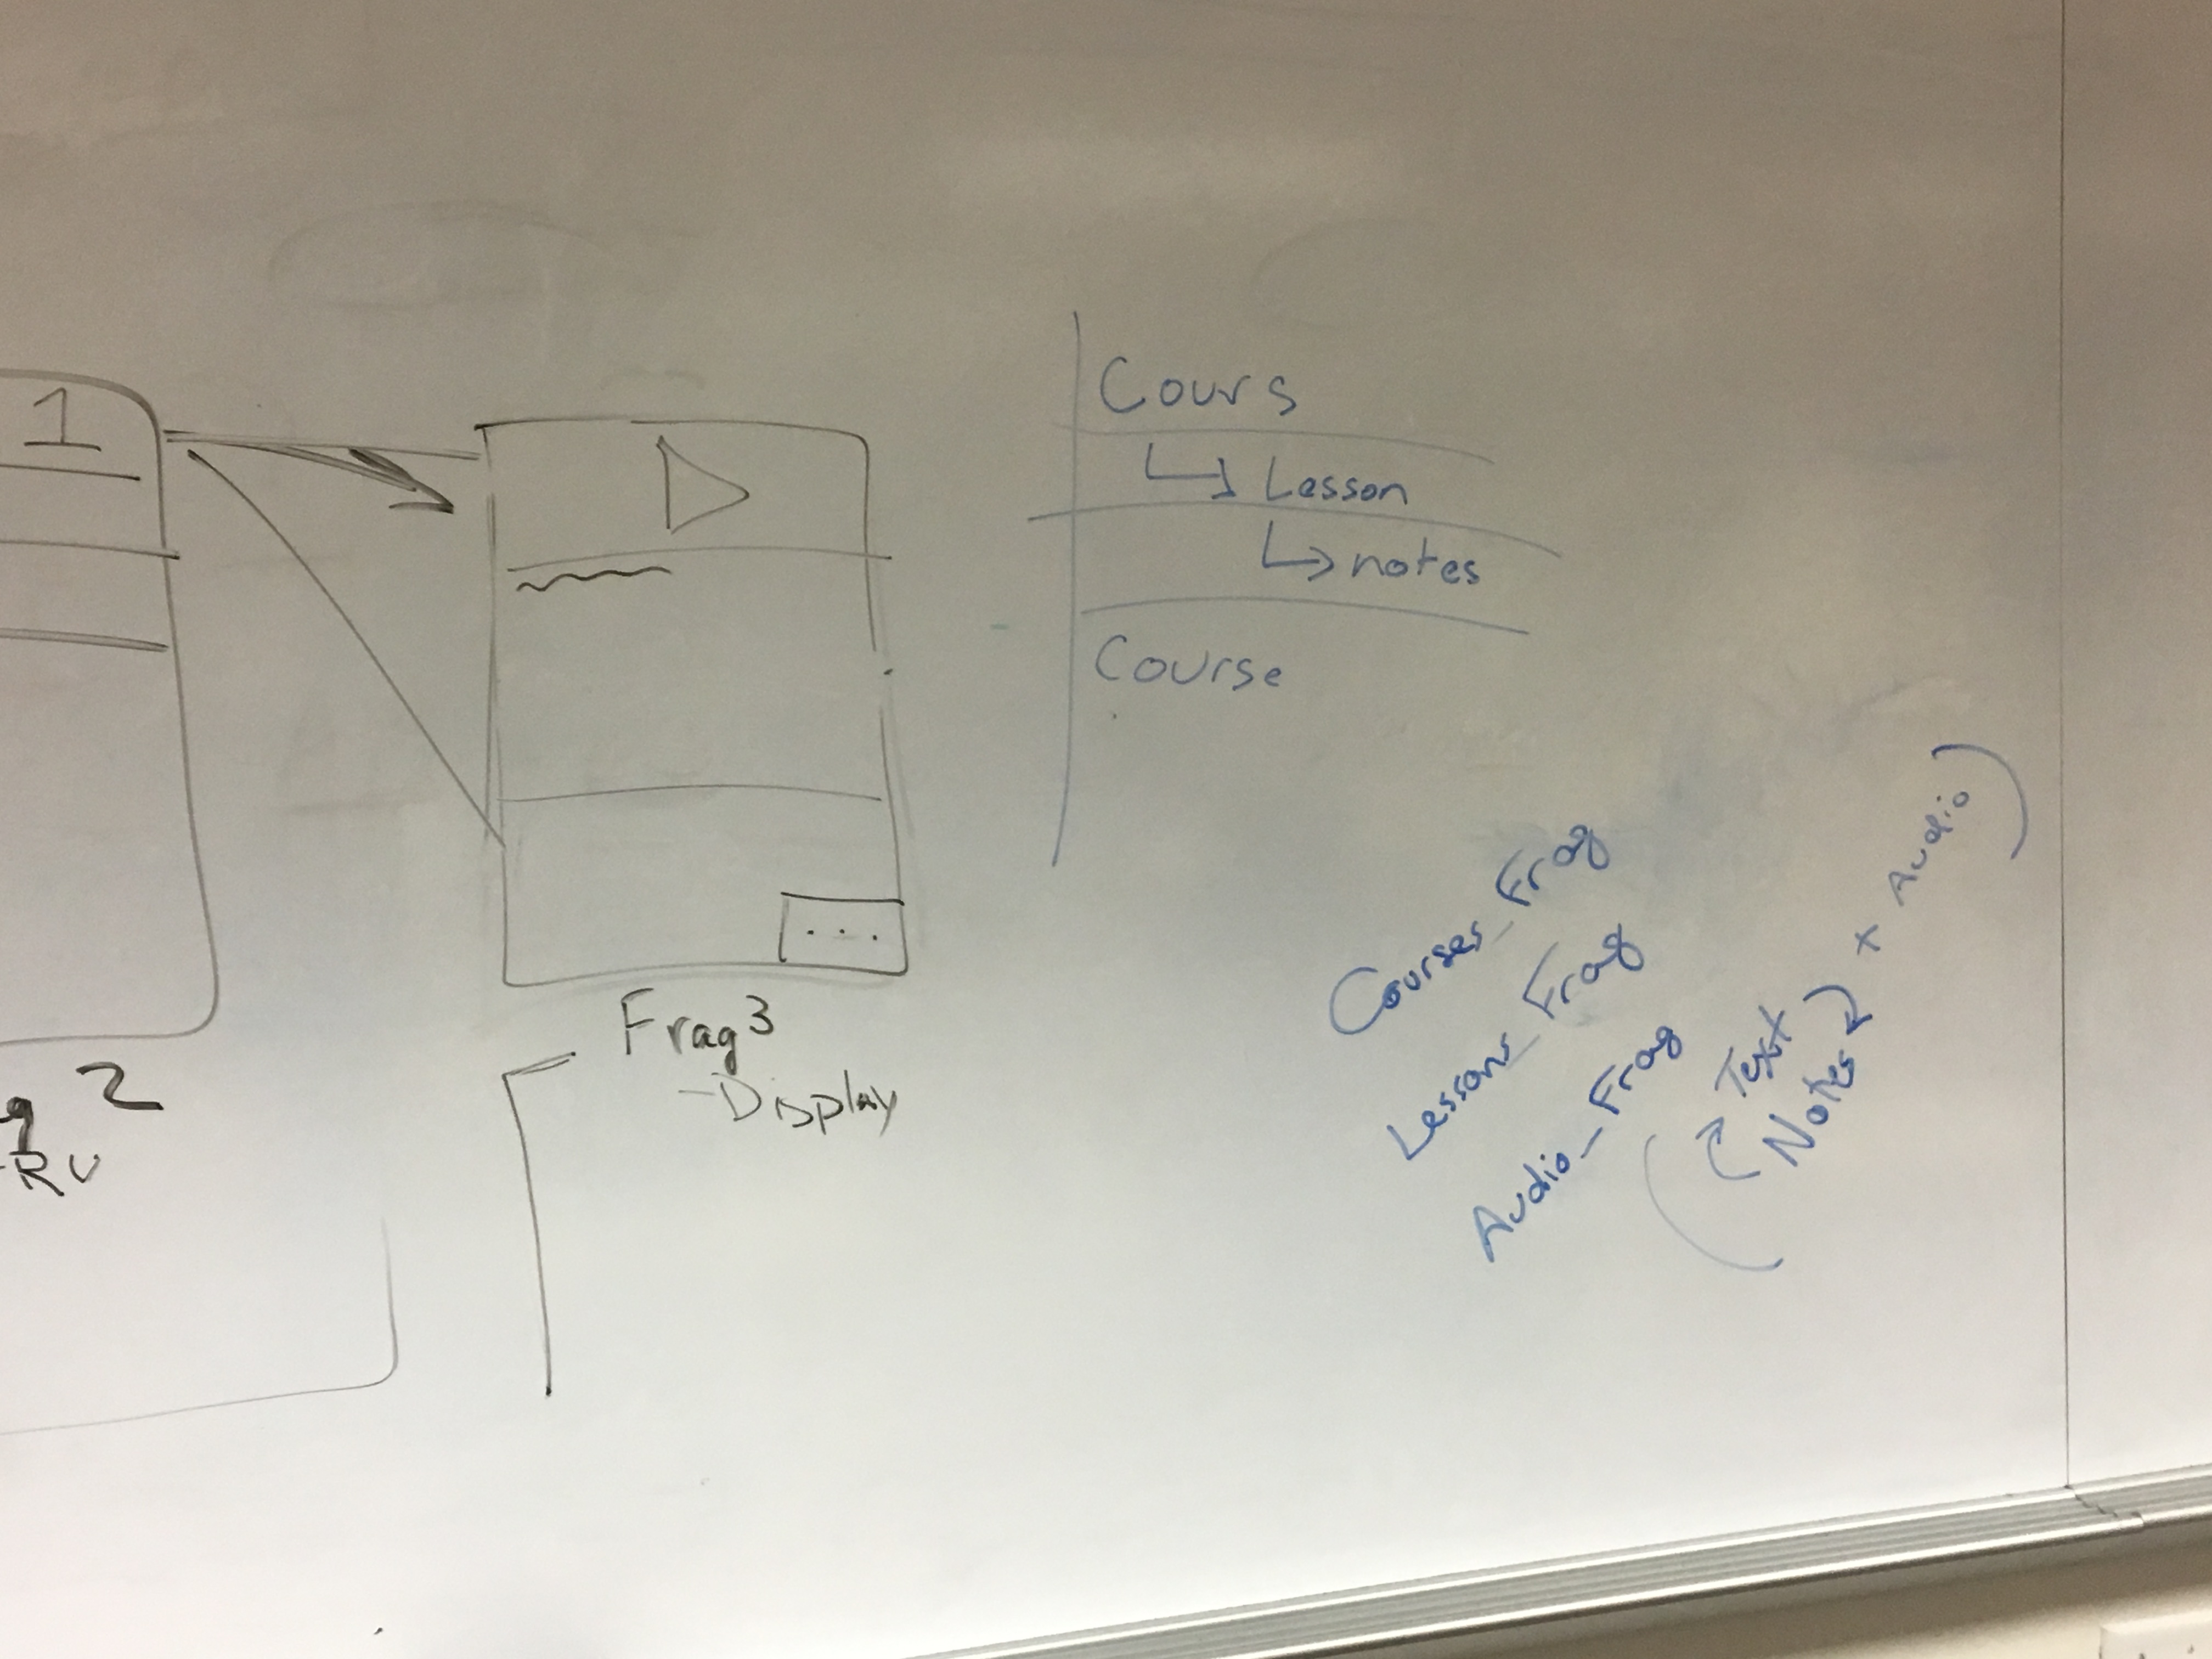 1
g 2
-RV
...
Frag3
-Display
Cours
Lesson
notes
Course
Courses_Frag
Lessons_Frag
Audio_Frag
Text
Notes
+ Audio)